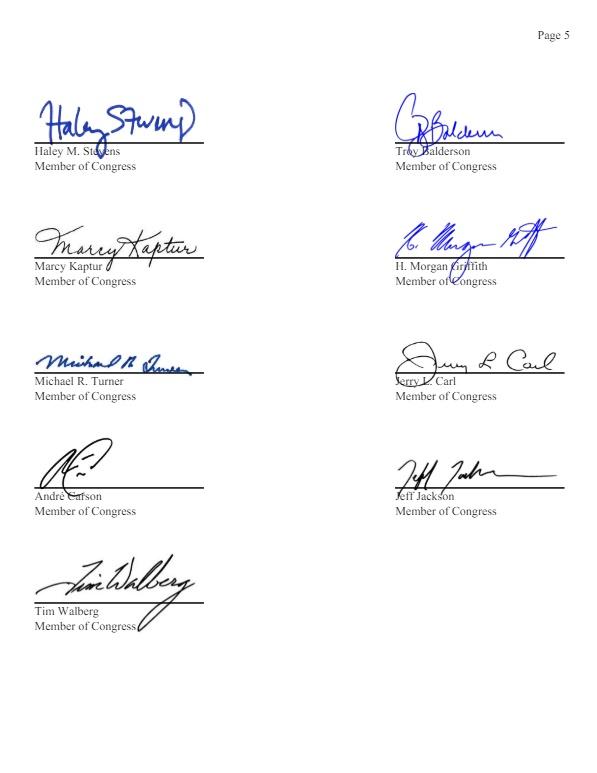 Page 5
Haley Stevens
Troy Balderson
Haley M. Stevens
Troy Balderson
Member of Congress
Member of Congress
Marcy Kaptur
H. Morgan Griffith
Marcy Kaptur
H. Morgan Griffith
Member of Congress
Member of Congress
Michael R. Turner
Jerry L Carl
Michael R. Turner
Jerry L. Carl
Member of Congress
Member of Congress
Jeff Jackson
André Carson
Jeff Jackson
Member of Congress
Member of Congress
Tim Walberg
Tim Walberg
Member of Congress